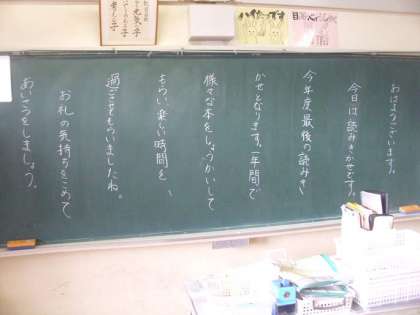 おはようございます。
今日は読みきかせです。
今年度最後の読みき
かせとなります。一年間で
様々な本をしょうかいして
もらい、楽しい時間を、
過ごさせてもらいましたね。
お礼の気持ちをこめて
あいさつをしましょう。